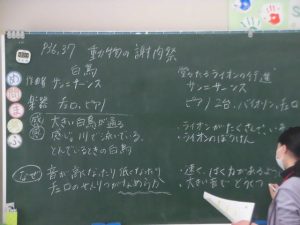 P36,37 動物の謝肉祭
白鳥
作曲 サン=サーンス
楽器 チェロ、ピアノ
感 大きい白鳥が通る
感じ。川で泳いでいる、
とんでいるときの白鳥
なぜ 音が高くなったり低くなったり
チェロのせんりつがなめらか
堂々たるライオンの行進
サン=サーンス
ピアノ2台、バイオリン、チェロ
・ライオンがたくさんいる
・ライオンのぼうけん
・速く、はく力があるよう
・大きい音で